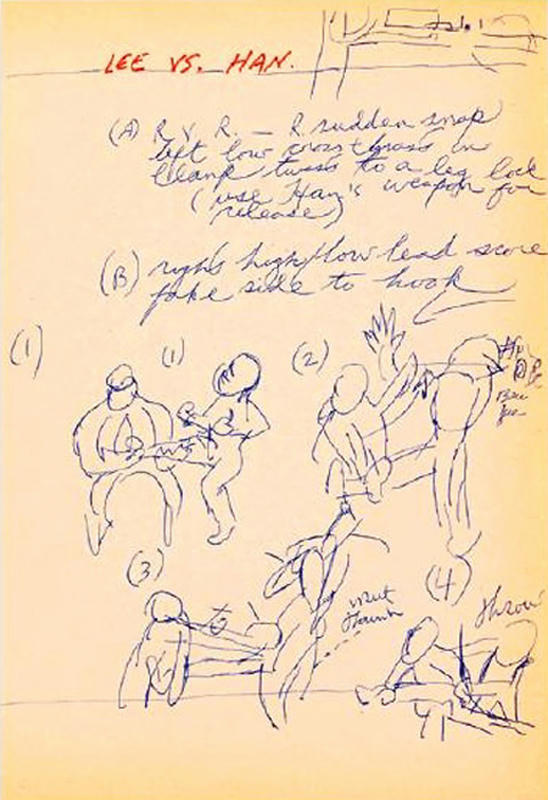 LEE VS. HAN.
(A) R & R. — R. sudden snap
left low cross thrust in
clamp twist to a leg lock
(use Han's weapon for
release)
(B) right high/low lead score
fake side to hook
(1) (1) (2)
(3)
(4)
throw